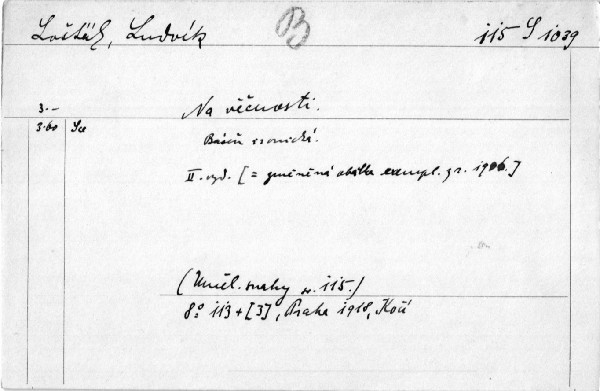 Lošťák, Ludvík B 115 S 1039
3.–
Na věčnosti.
3.60
Báseň
II. vyd. [= změněná obálka exempl. z r. 1906.]
(Uměl. snahy sv. 115.)
8° 113 + [3], Praha 1918, Kočí